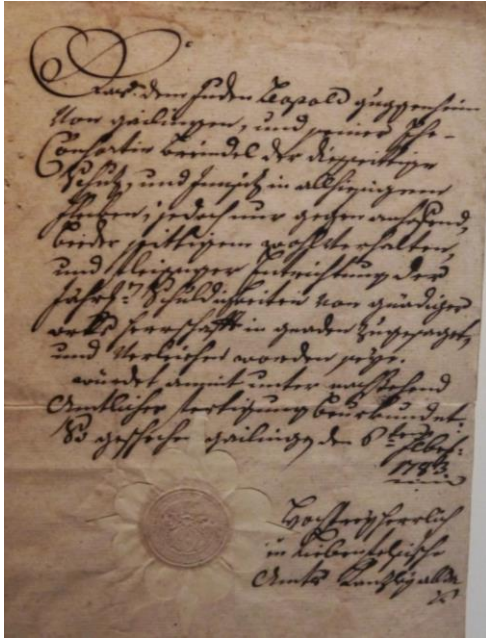 Daß dem Juden Leopold guggenheim
von gailingen, und seiner Ehe-
Consortin Breindel der diesseitige
Schutz, und Innsitz in allhiesigem
flecken, jedoch nur gegen
beeder sittigem wohlverhalten,
und fleissiger Entrichtung der
Jährl: Schuldigkeiten von gnädiger
orths herrschafft in gnaden zugesaget,
und verliehen worden seye.
würdet anmit unter nachstehend
Amtlicher fertigung beurkundet.
So geschehen gailingen den 6
1783
Hochfreyherrlich
in Liebenfelsische
Amts Kanzley allda